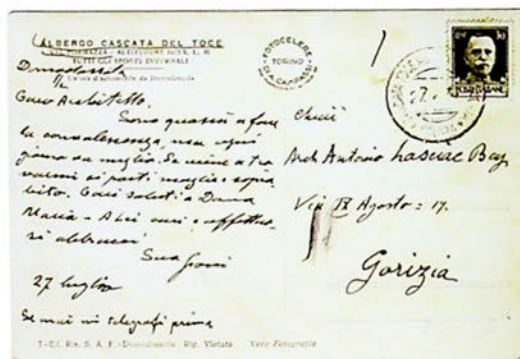 ALBERGO CASCATA DEL TOCE
TUTTI GLI SPORTS INVERNALI
Domodossola
FOTOCELERE
TORINO
DI A. CAMPASSI
30
POSTE ITALIANE
27
Caro Architetto,
Sono quassù a fare
la convalescenza, ma ogni
giorno va meglio. Se viene a tro
varmi si porti maglie e sopra
bito. Cari saluti a Donna
Maria - A Lei cari e affettuo-
si abbracci
Sua
27 luglio
Se mai mi telegrafi prima
Arch Antonio Lasciac Bey
Via IX Agosto = 17.
Gorizia
1 - Ed. Ris. S. A. F. - Domodossola - Rip. Vietata Vera Fotografia